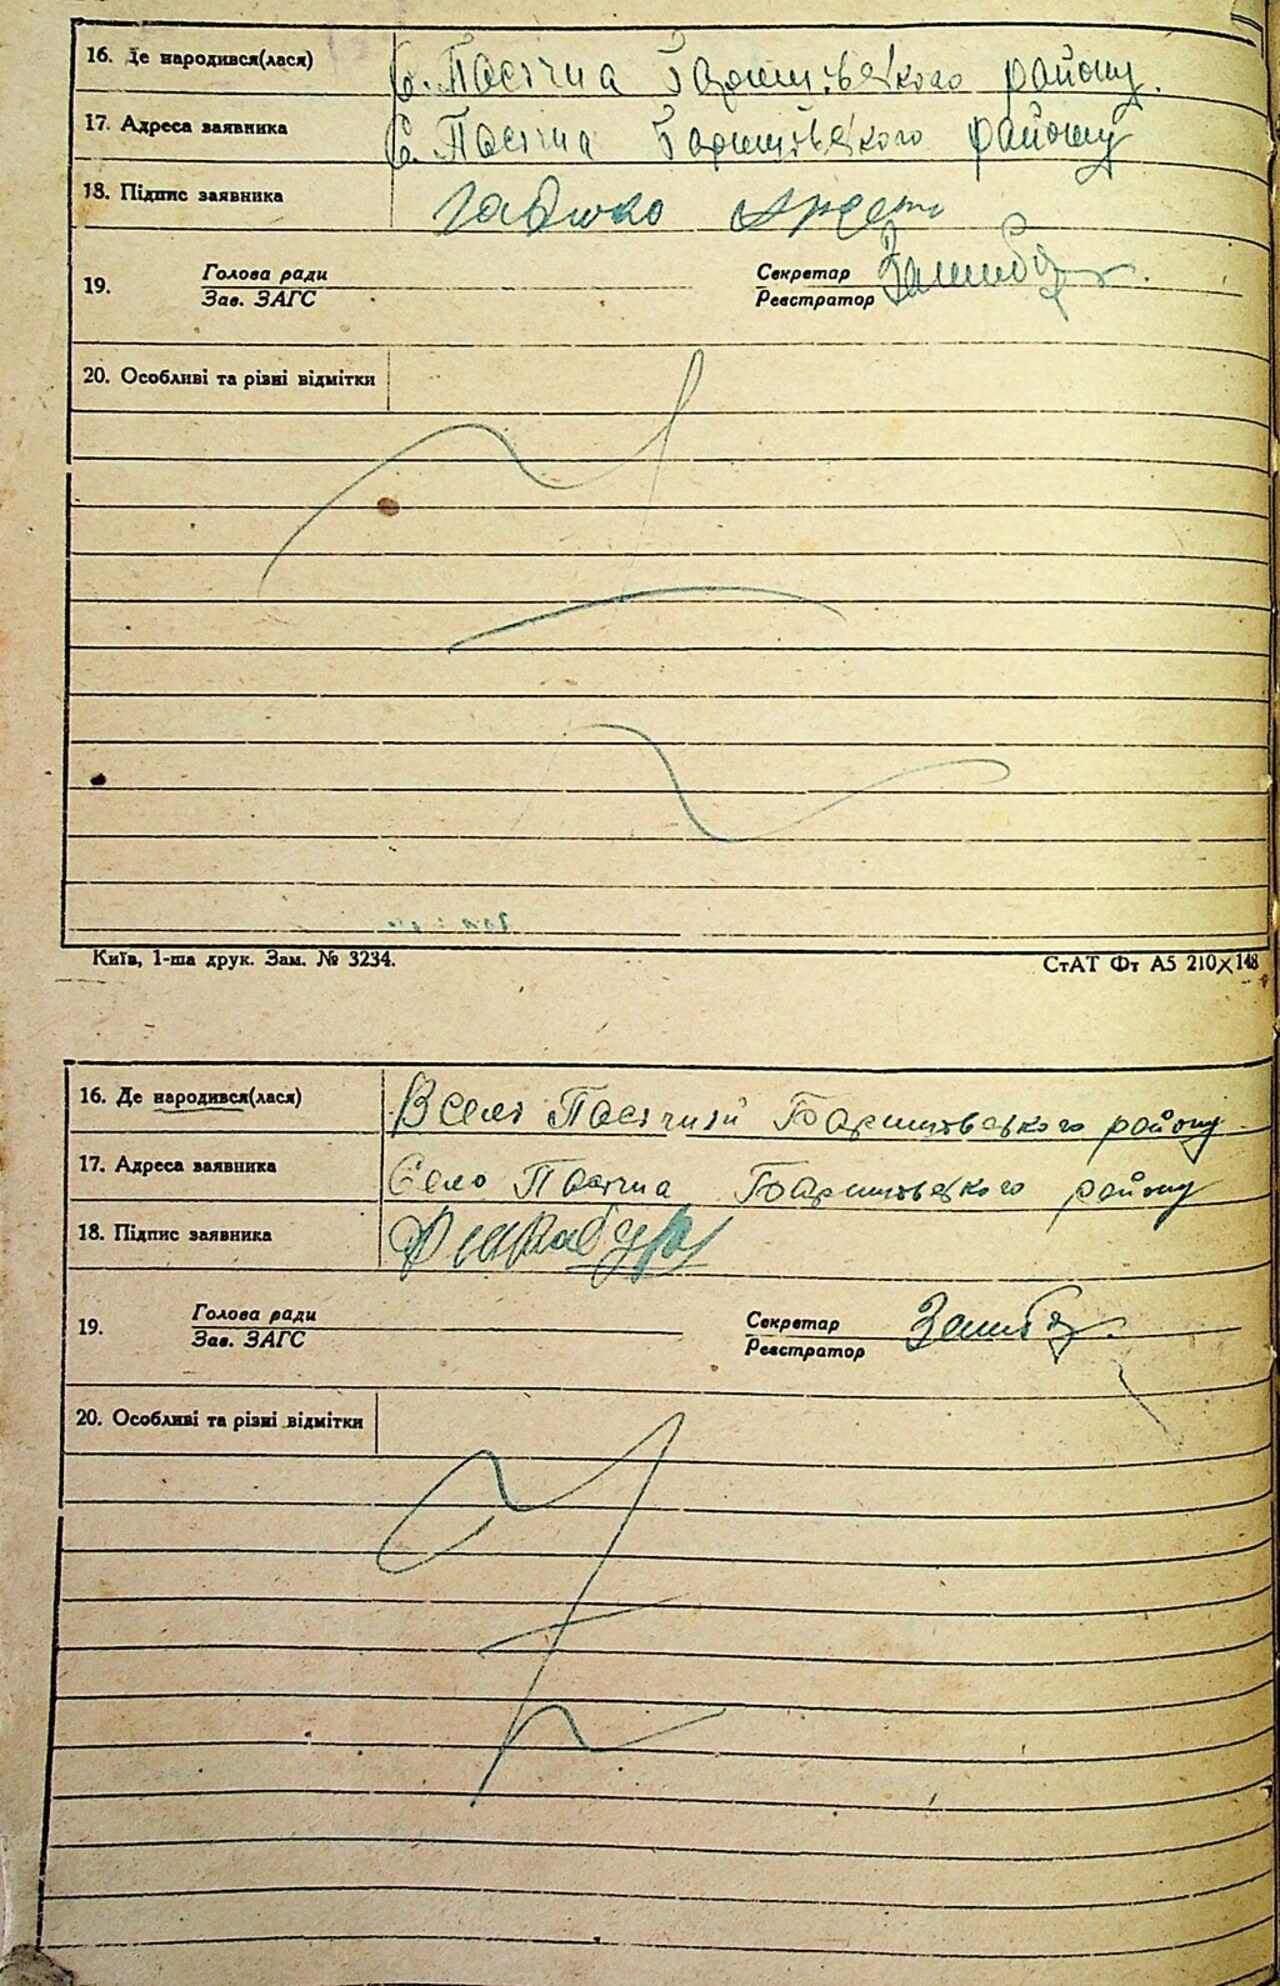 16. Де народився(лася) с. Пасічна Баришівського району.
17. Адреса заявника с. Пасічна Баришівського району
18. Підпис заявника
19. Голова ради Секретар
Зав. ЗАГС Реєстратор
20. Особливі та різні відмітки
Київ, 1-ша друк. Зам. № 3234. СтАТ Фт А5 210×148
16. Де народився(лася) В селі Пасічній Баришівського району
17. Адреса заявника Село Пасічна Баришівського району
18. Підпис заявника
19. Голова ради Секретар
Зав. ЗАГС Реєстратор
20. Особливі та різні відмітки